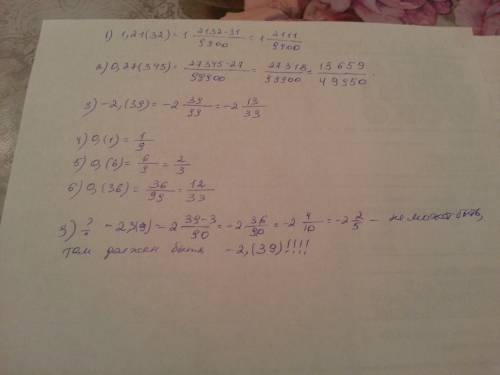 1) 1,21(32) = 1 2132-31/9900 = 1 2111/9900
2) 0,27(345) = 27345-27/99900 = 27318/99900 = 13659/49950.
3) -2,(39) = -2 39/99 = -2 13/33
4) 0,(1) = 1/9
5) 0,(6) = 6/9 = 2/3
6) 0,(36) = 36/99 = 12/33
3) ? -2,3(9) = -2 39-3/90 = -2 36/90 = -2 4/10 = -2 2/5 - не может быть,
там должен быть -2,(39)!!!!